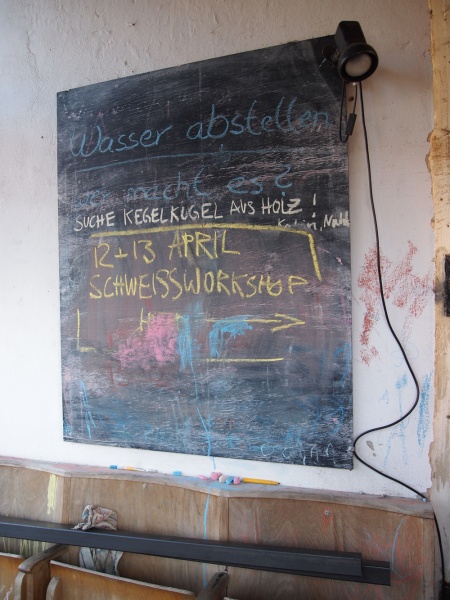 Wasser abstellen
wer macht es?
SUCHE KEGELKUGEL AUS HOLZ!
12+13 APRIL
SCHWEISSWORKSHOP